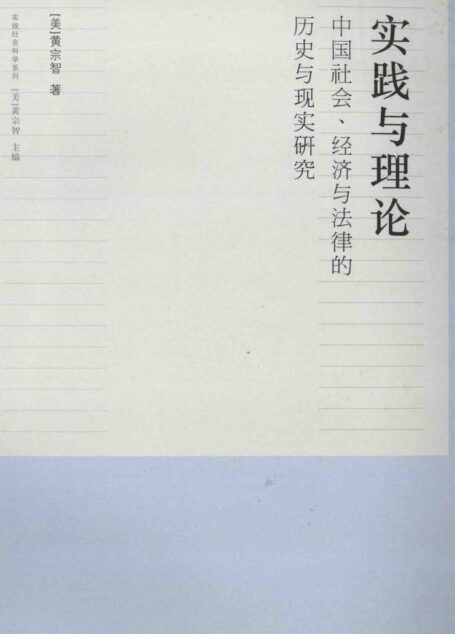 实践与理论
中国社会、经济与法律的
历史与现实研究
[美]黄宗智 著
实践社会科学系列 [美]黄宗智 主编